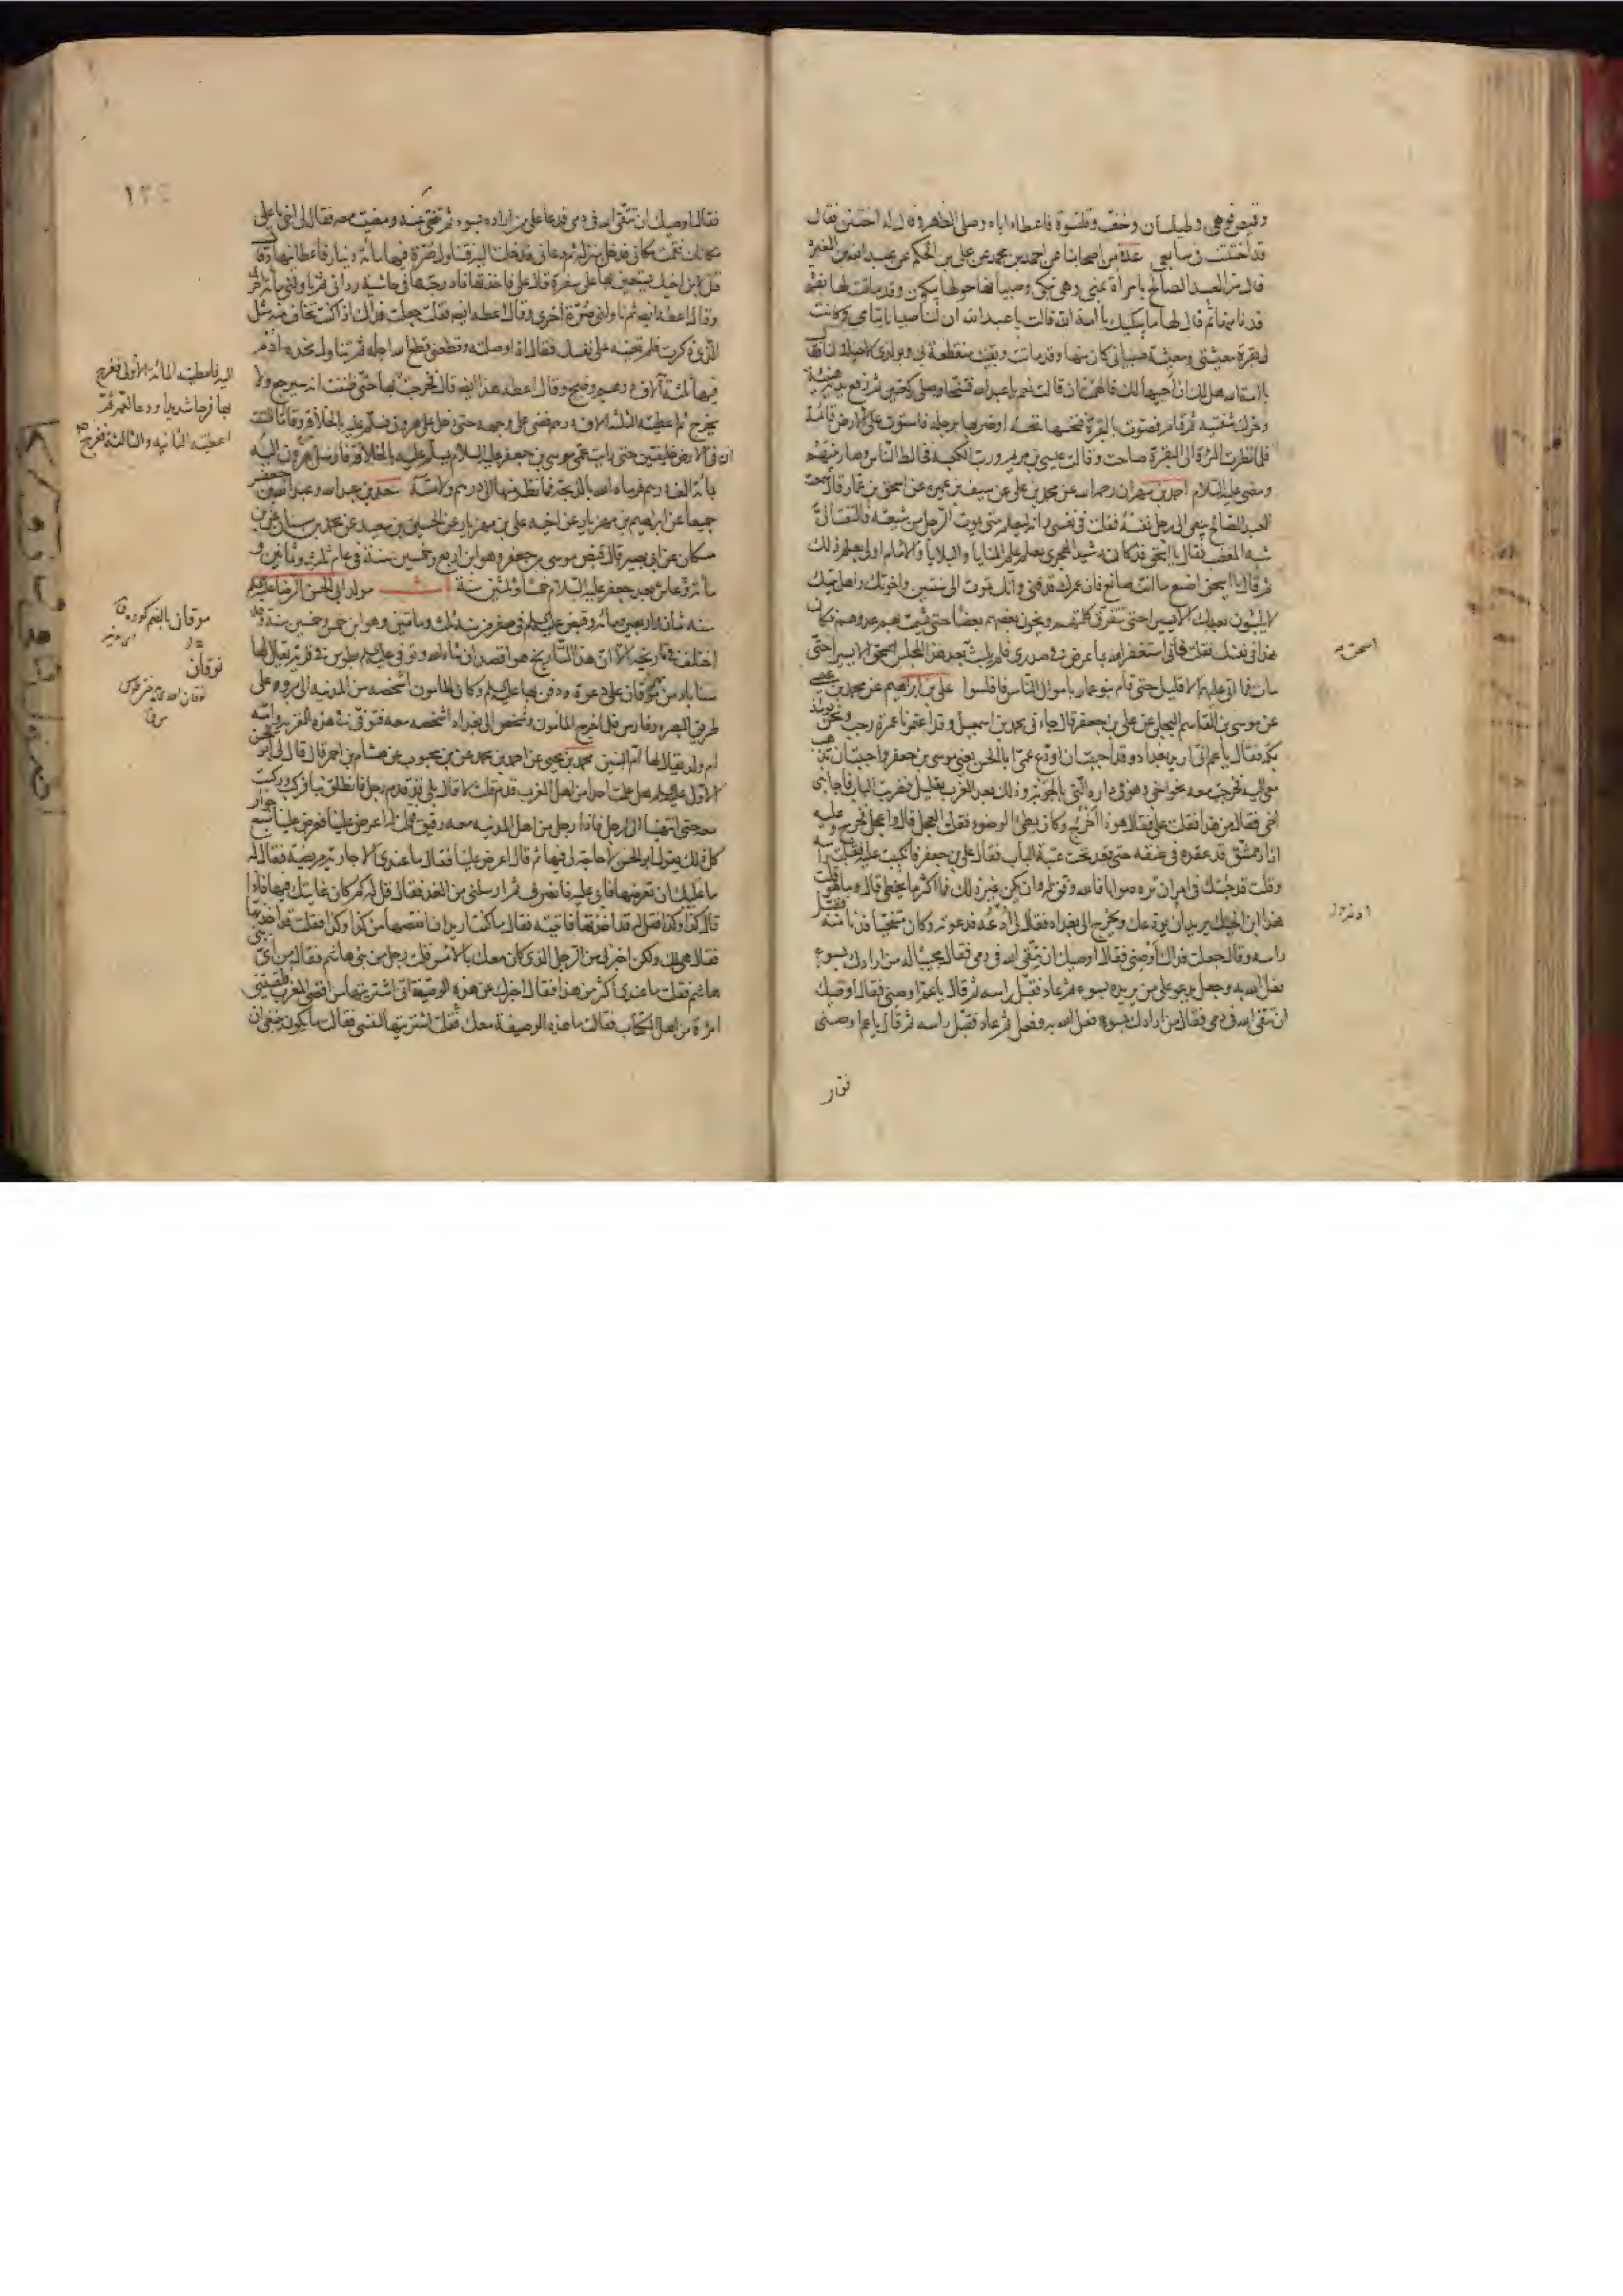 وقميص قوهي وطيلسان وخف وقلنسوة فاعطاه اياه وصلى الظهر وقال له اختتن فقال
قد اختتنت في سابعي عدة من اصحابنا عن احمد بن محمد عن علي بن الحكم عن عبد الله بن المغيرة
قال مر العبد الصالح بامرأة بمنى وهي تبكي وصبيانها حولها يبكون وقد ماتت لها بقرة
فدنا منها ثم قال لها ما يبكيك يا امة الله قالت يا عبد الله ان لنا صبيانا يتامى وكانت
لي بقرة معيشتي ومعيشة صبياني كان منها وقد ماتت وبقيت منقطعة بي وبولدي لا حيلة لنا فقال
يا امة الله هل لك ان احييها لك فالهمت ان قالت نعم يا عبد الله فتنحى وصلى ركعتين ثم رفع يده هنيئة
وحرك شفتيه ثم قام فصوت بالبقرة فنخسها نخسة او ضربها برجله فاستوت على الارض قائمة
فلما نظرت المرأة الى البقرة صاحت وقالت عيسى بن مريم ورب الكعبة فخالط الناس وصار بينهم
ومضى عليه السلام احمد بن مهران رحمه الله عن محمد بن علي عن سيف بن عميرة عن اسحق بن عمار قال سمعت
العبد الصالح ينعى الى رجل نفسه فقلت في نفسي وانه ليعلم متى يموت الرجل من شيعته فالتفت الي
شبه المغضب فقال يا اسحق قد كان رشيد الهجري يعلم علم المنايا والبلايا والامام اولى بعلم ذلك
ثم قال يا اسحق اصنع ما انت صانع فان عمرك قد فني وانك تموت الى سنتين واخوتك واهل بيتك
لا يلبثون بعدك الا يسيرا حتى تتفرق كلمتهم ويخون بعضهم بعضا حتى يشمت بهم عدوهم فكان
هذا في نفسك فقلت فاني استغفر الله بما عرض في صدري فلم يلبث بعد هذا المجلس اسحق الا يسيرا حتى
مات فما اتى عليهم الا قليل حتى قام بنو عمار باموال الناس فافلسوا علي بن ابراهيم عن محمد بن عيسى
عن موسى بن القاسم البجلي عن علي بن جعفر قال جاءني محمد بن اسمعيل وقد اعتمرنا عمرة رجب ونحن يومئذ
بمكة فقال يا عم اني اريد بغداد وقد احببت ان اودع عمي ابا الحسن يعني موسى بن جعفر واحببت ان تذهب
معي اليه فخرجت معه نحو اخي وهو في داره التي بالحوبة وذلك بعد المغرب بقليل فضربت الباب فاجابني
اخي فقال من هذا فقلت علي فقال هو ذا اخرج وكان بطئ الوضوء فقلت العجل قال واعجل فخرج وعليه
ازار ممشق قد عقده في عنقه حتى قعد تحت عتبة الباب فقال علي بن جعفر فانكببت عليه فقبلت رأسه
وقلت قد جئتك في امر ان تره صوابا فالله وفق له وان يكن غير ذلك فما اكثر ما نخطي قال وما هو قلت
هذا ابن اخيك يريد ان يودعك ويخرج الى بغداد فقال لي ادعه فدعوته وكان متنحيا فدنا منه فقبل
راسه وقال جعلت فداك اوصني فقال اوصيك ان تتقي الله في دمي فقال مجيبا له من ارادك بسوء
فعل الله به وجعل يدعو على من يريده بسوء ثم عاد فقبل راسه ثم قال يا عم اوصني فقال اوصيك
ان تتقي الله في دمي فقال من ارادك بسوء فعل الله به وفعل ثم عاد فقبل راسه ثم قال يا عم اوصني
فقال
فقال اوصيك ان تتقي الله في دمي فدعا على من اراده بسوء ثم تنحى عنه ومضيت معه فقال لي اخي يا علي
مكانك فقمت مكاني فدخل منزله ثم دعاني فدخلت اليه فتناول صرة فيها مائة دينار فاعطانيها وقال
قل لابن اخيك يستعين بها على سفره قال علي فاخذتها فادرجتها في حاشية ردائي ثم ناولني مائة اخرى
وقال اعطه ايضا ثم ناولني صرة اخرى وقال اعطه ايضا فقلت جعلت فداك اذا كنت تخاف منه مثل
الذي ذكرت فلم تعينه على نفسك فقال اذا وصلته وقطعني قطع الله اجله ثم تناول مخدة ادم
فيها ثلثة آلاف درهم وضح وقال اعطه هذا ايضا قال فخرجت
اليه فاعطيته المائة الاولى ففرح
بها فرحا شديدا ودعا لعمه ثم
اعطيته الثانية والثالثة ففرح
بها حتى ظننت انه سيرجع ولا
يخرج ثم اعطيته الثلثة الاف درهم فمضى على وجهه حتى دخل على هرون فسلم عليه بالخلافة وقال ما ظننت
ان في الارض خليفتين حتى رايت عمي موسى بن جعفر عليه السلام يسلم عليه بالخلافة فارسل هرون اليه
بمائة الف درهم فرماه الله بالذبحة فما نظر منها الى درهم ولا مسه سعد بن عبد الله وعبد الله بن جعفر
جميعا عن ابراهيم بن مهزيار عن اخيه علي بن مهزيار عن الحسين بن سعيد عن محمد بن سنان عن ابن
مسكان عن ابي بصير قال قبض موسى بن جعفر وهو ابن اربع وخمسين سنة في عام ثلث وثمانين و
مائة وعاش بعد جعفر عليه السلام خمسا وثلثين سنة مولد ابي الحسن الرضا عليه السلام
سنة ثمان واربعين ومائة وقبض عليه السلام في صفر من سنة ثلث ومائتين وهو ابن خمس وخمسين سنة وقد
اختلف في تاريخه الا ان هذا التاريخ هو اقصد ان شاء الله وتوفي عليه السلام بطوس في قرية يقال لها
سناباد من موقان على دعوة ودفن بها عليه السلام وكان المامون اشخصه من المدينة الى مرو على
طريق البصره وفارس فلما خرج المامون وشخص الى بغداد اشخصه معه فتوفى في هذه القرية وامه
ام ولد يقال لها ام البنين محمد بن يحيى عن احمد بن محمد عن ابن محبوب عن هشام بن احمر قال قال لي ابو الحسن
الاول عليه السلام هل علمت احدا من اهل المغرب قدم قلت لا قال بلى قد قدم رجل فانطلق بنا فركب وركبت
معه حتى انتهينا الى الرجل فاذا رجل من اهل المدينة معه رقيق فقلت له اعرض علينا فعرض علينا سبع جوار
كل ذلك يقول ابو الحسن لا حاجة لي فيها ثم قال اعرض علينا فقال ما عندي الا جارية مريضة فقال له
ما عليك ان تعرضها فابى عليه فانصرف ثم ارسلني من الغد فقال قل له كم كان غايتك فيها فاذا
قال كذا وكذا فقل قد اخذتها فاتيته فقال ما كنت اريد ان انقصها من كذا وكذا فقلت قد اخذتها
فقال هي لك ولكن اخبرني من الرجل الذي كان معك بالامس قلت رجل من بني هاشم فقال من اي بني
هاشم فقلت ما عندي اكثر من هذا فقال اخبرك عن هذه الوصيفة اني اشتريتها من اقصى المغرب فلقيتني
امرأة من اهل الكتاب فقالت ما هذه الوصيفة معك فقلت اشتريتها لنفسي فقالت ما يكون ينبغي ان
موقان بالضم كورة
نوقان